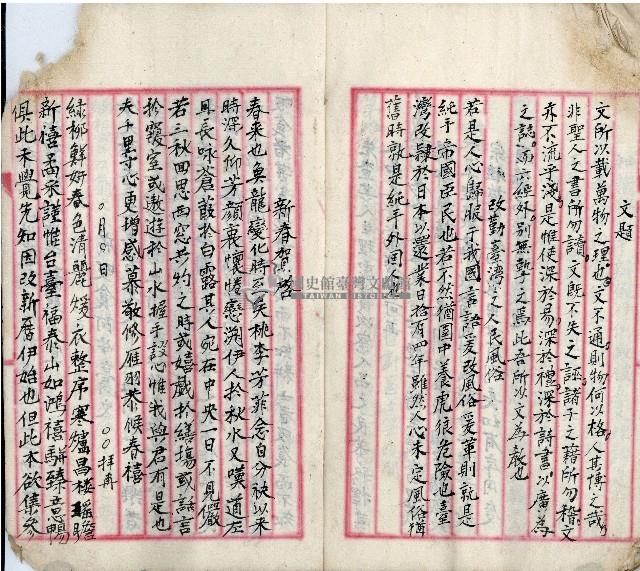 文題
文所以載萬物之理也文不通則物何以格人其博之哉
非聖人之書所勿讀文既不失之誣諸子之藉所勿稽文
亦不流乎淺是惟使深於易深於禮深於詩書以廣為
之誌而六經外別無擊之焉此吾所以文為教也
改勸臺灣之人民風俗
若是人心歸服于我國言語爰改風俗爰革則就是
純乎帝國臣民也若不然猶國中養虎狼危險也臺
灣改隸於日本以還業日拾有四年雖然人心未定風俗猶
舊時就是純乎外國人
新春賀啓
春來也魚龍變化時至矣桃李芳菲念自分袂以來
時深久仰芳顏衷懷惓戀溯伊人於秋水又嘆道左
且長咏蒼葭於白露其人宛在中央一日不見儼
若三秋回思西窓共灼之時或嬉戲於繕場或話言
於寢室或遨遊於山水握手談心惟我與君有是也
夫千里寸心更增感慕敬修雁羽恭候春禧
〇月〇日 〇〇拜再
綠柳鮮妍春色清麗煖衣整席寒爐昌樓
新禧孟柔謹惟台臺福泰山如鴻禧駢臻意暢
俱此未覺先知因改新曆伊始也但此本欲集參
國史館臺灣文獻館
TAIWAN HISTORICA